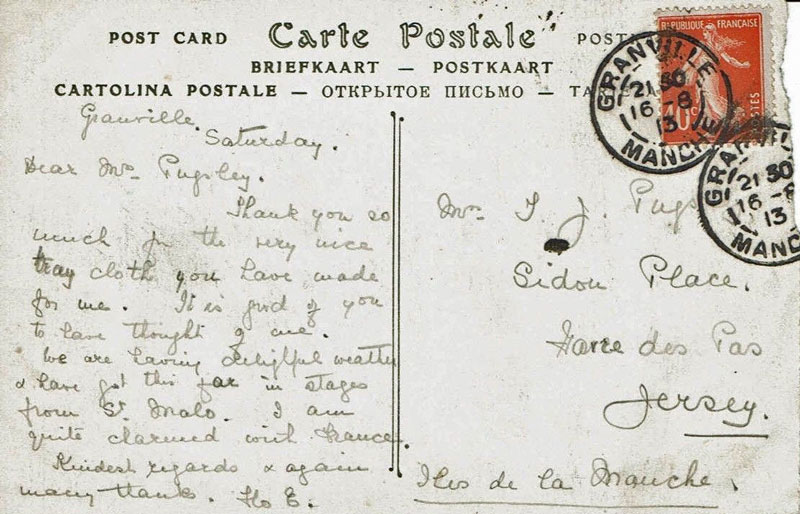 POST CARD Carte Postale POST
BRIEFKAART — POSTKAART
CARTOLINA POSTALE – ОТКРЫТОЕ ПИСЬМО –
Granville.
Saturday.
Dear Mrs Pugsley.
Thank you so
much for the very nice
tray cloth you have made
for me. It is good of you
to have thought of me.
We are having delightful weather
& have got this far in stages
from St. Malo. I am
quite charmed with France.
Kindest regards & again
many thanks. Flo E.
Mrs T. J. Pugs
Sidon Place.
des Pas
Jersey.
Iles de la Manche.
RÉPUBLIQUE FRANÇAISE
10c POSTES
GRANVILLE
21 50
16 -8
13
MANCHE
GRA
21 50
16 -8
13
MANC